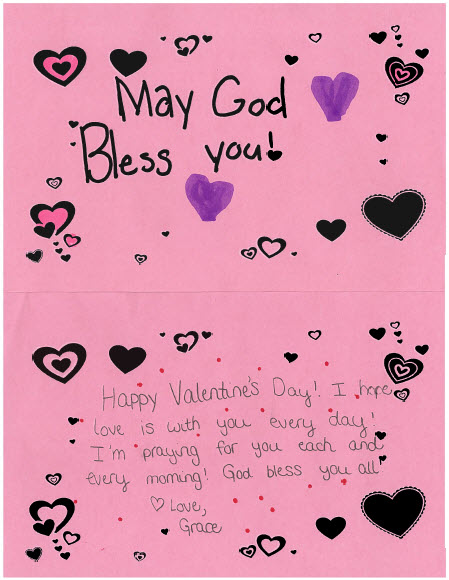 May God
Bless you!
Happy Valentine's Day! I hope
love is with you every day!
I'm praying for you each and
every morning! God bless you all!
♡ Love,
Grace